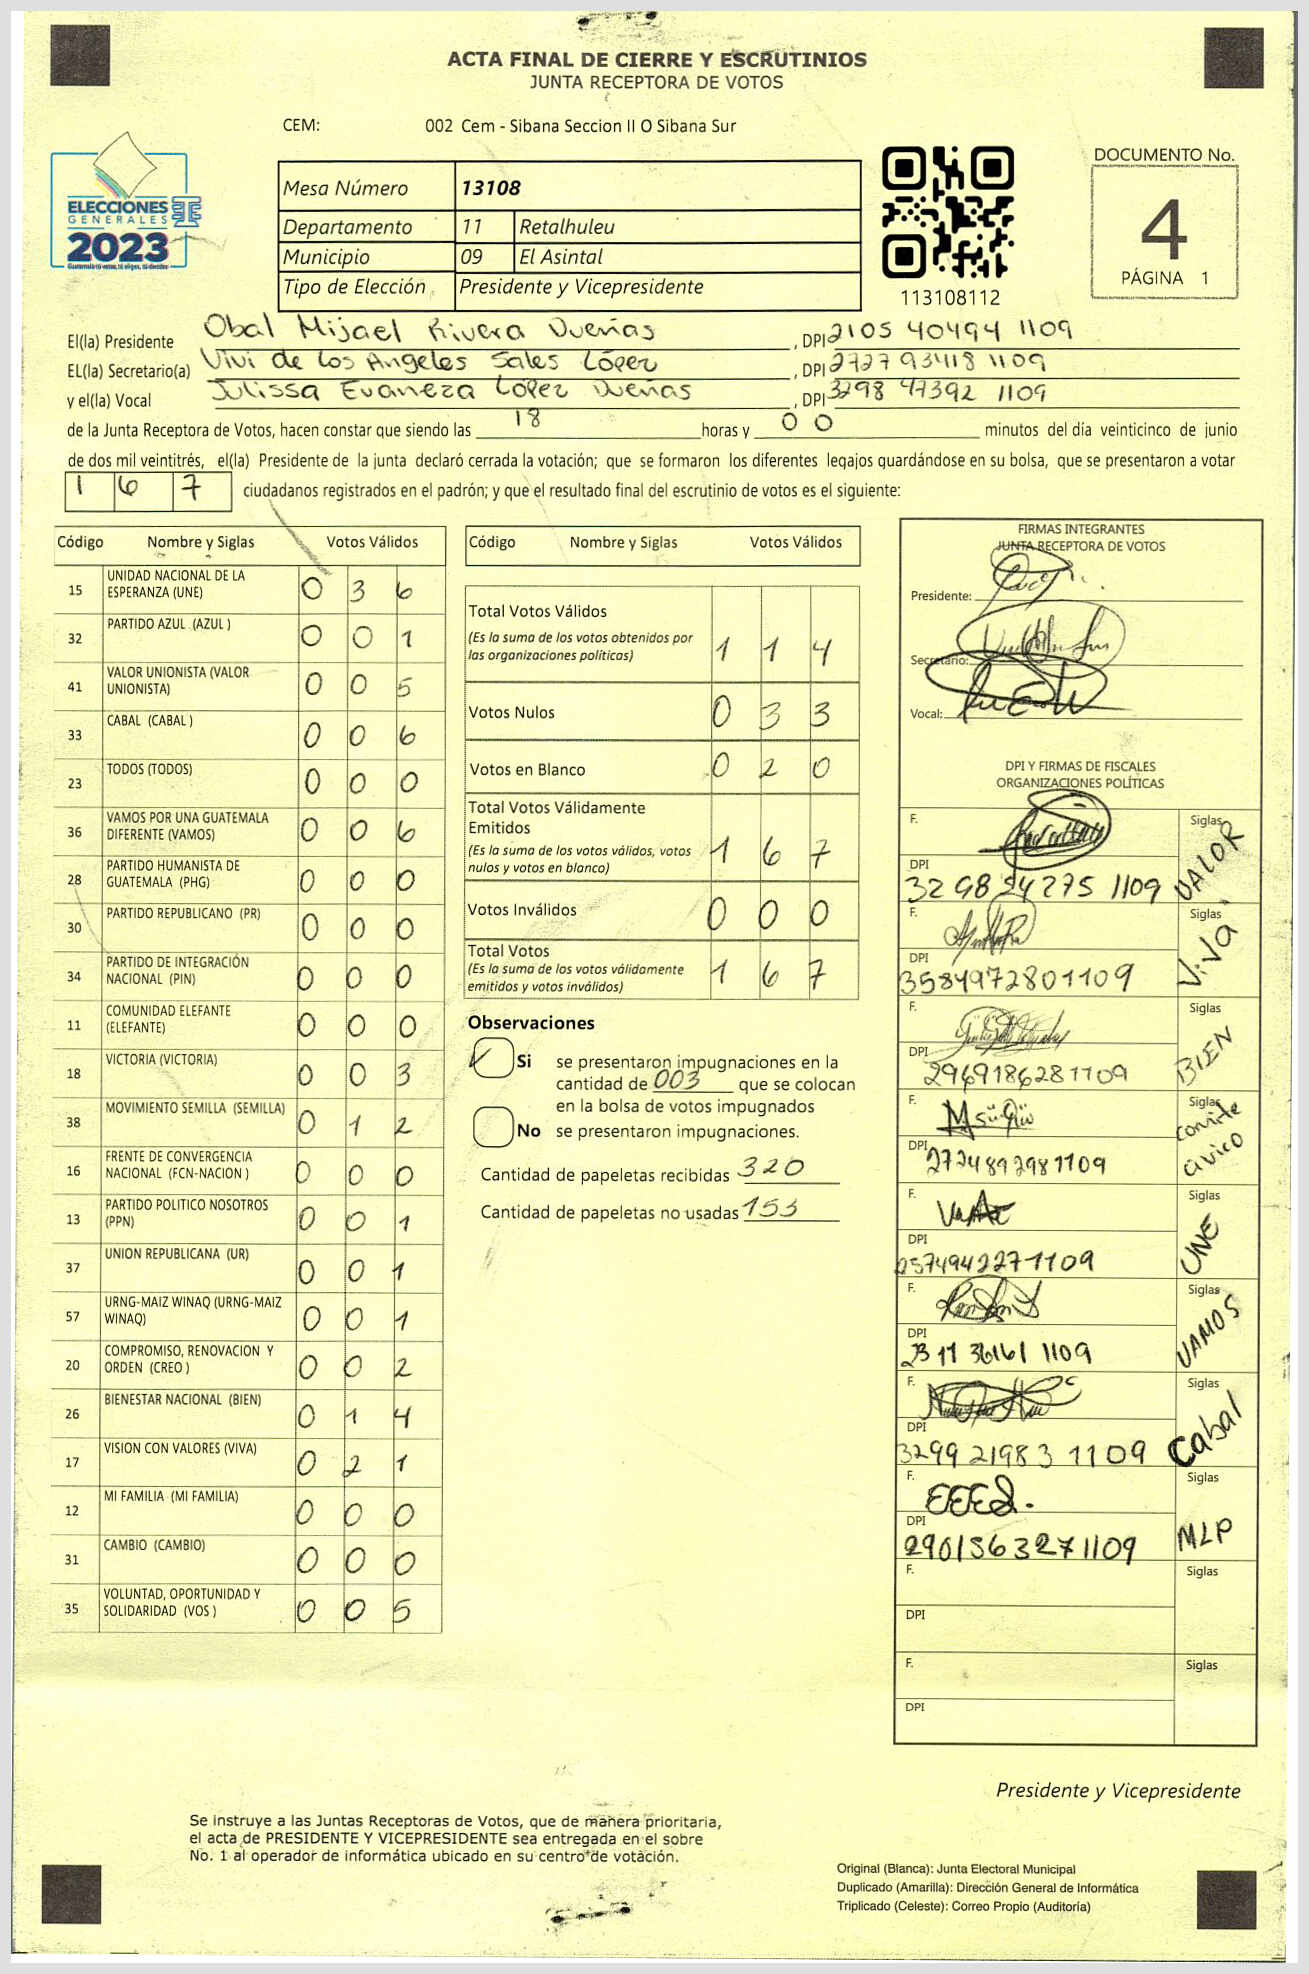 ACTA FINAL DE CIERRE Y ESCRUTINIOS
JUNTA RECEPTORA DE VOTOS
CEM: 002 Cem - Sibana Seccion II O Sibana Sur
ELECCIONES
GENERALES
2023
Guatemala tú votas, tú eliges, tú decides
Mesa Número 13108
Departamento 11 Retalhuleu
Municipio 09 El Asintal
Tipo de Elección Presidente y Vicepresidente
113108112
DOCUMENTO No.
4
PÁGINA 1
El(la) Presidente Obal Mijael Rivera Dueñas, DPI 2105 40494 1109
EL(la) Secretario(a) Vivi de Los Angeles Sales López, DPI 2727 93418 1109
y el(la) Vocal Julissa Evaneza López Dueñas, DPI 3298 47392 1109
de la Junta Receptora de Votos, hacen constar que siendo las 18 horas y 00 minutos del día veinticinco de junio
de dos mil veintitrés, el(la) Presidente de la junta declaró cerrada la votación; que se formaron los diferentes legajos guardándose en su bolsa, que se presentaron a votar
1 6 7 ciudadanos registrados en el padrón; y que el resultado final del escrutinio de votos es el siguiente:
Código Nombre y Siglas Votos Válidos
15 UNIDAD NACIONAL DE LA ESPERANZA (UNE) 0 3 6
32 PARTIDO AZUL (AZUL ) 0 0 1
41 VALOR UNIONISTA (VALOR UNIONISTA) 0 0 5
33 CABAL (CABAL ) 0 0 6
23 TODOS (TODOS) 0 0 0
36 VAMOS POR UNA GUATEMALA DIFERENTE (VAMOS) 0 0 6
28 PARTIDO HUMANISTA DE GUATEMALA (PHG) 0 0 0
30 PARTIDO REPUBLICANO (PR) 0 0 0
34 PARTIDO DE INTEGRACIÓN NACIONAL (PIN) 0 0 0
11 COMUNIDAD ELEFANTE (ELEFANTE) 0 0 0
18 VICTORIA (VICTORIA) 0 0 3
38 MOVIMIENTO SEMILLA (SEMILLA) 0 1 2
16 FRENTE DE CONVERGENCIA NACIONAL (FCN-NACION ) 0 0 0
13 PARTIDO POLITICO NOSOTROS (PPN) 0 0 1
37 UNION REPUBLICANA (UR) 0 0 1
57 URNG-MAIZ WINAQ (URNG-MAIZ WINAQ) 0 0 1
20 COMPROMISO, RENOVACION Y ORDEN (CREO ) 0 0 2
26 BIENESTAR NACIONAL (BIEN) 0 1 4
17 VISION CON VALORES (VIVA) 0 2 1
12 MI FAMILIA (MI FAMILIA) 0 0 0
31 CAMBIO (CAMBIO) 0 0 0
35 VOLUNTAD, OPORTUNIDAD Y SOLIDARIDAD (VOS ) 0 0 5
Código Nombre y Siglas Votos Válidos
Total Votos Válidos 1 1 4
(Es la suma de los votos obtenidos por
las organizaciones políticas)
Votos Nulos 0 3 3
Votos en Blanco 0 2 0
Total Votos Válidamente
Emitidos 1 6 7
(Es la suma de los votos válidos, votos
nulos y votos en blanco)
Votos Inválidos 0 0 0
Total Votos 1 6 7
(Es la suma de los votos válidamente
emitidos y votos inválidos)
Observaciones
Si se presentaron impugnaciones en la
cantidad de 003 que se colocan
en la bolsa de votos impugnados
No se presentaron impugnaciones.
Cantidad de papeletas recibidas 320
Cantidad de papeletas no usadas 153
FIRMAS INTEGRANTES
JUNTA RECEPTORA DE VOTOS
Presidente:
Secretario:
Vocal:
DPI Y FIRMAS DE FISCALES
ORGANIZACIONES POLÍTICAS
F. Siglas VALOR
DPI 3298 24275 1109
F. Siglas ViVa
DPI 3584972801109
F. Siglas BIEN
DPI 2969186281109
F. Siglas comite civico
DPI 2724892981109
F. Siglas UNE
DPI 2574942271109
F. Siglas VAMOS
DPI 2311 36161 1109
F. Siglas Cabal
DPI 3299 21983 1109
F. Siglas MLP
DPI 2901563271109
F. Siglas
DPI
F. Siglas
DPI
Presidente y Vicepresidente
Se instruye a las Juntas Receptoras de Votos, que de manera prioritaria,
el acta de PRESIDENTE Y VICEPRESIDENTE sea entregada en el sobre
No. 1 al operador de informática ubicado en su centro de votación.
Original (Blanca): Junta Electoral Municipal
Duplicado (Amarilla): Dirección General de Informática
Triplicado (Celeste): Correo Propio (Auditoría)